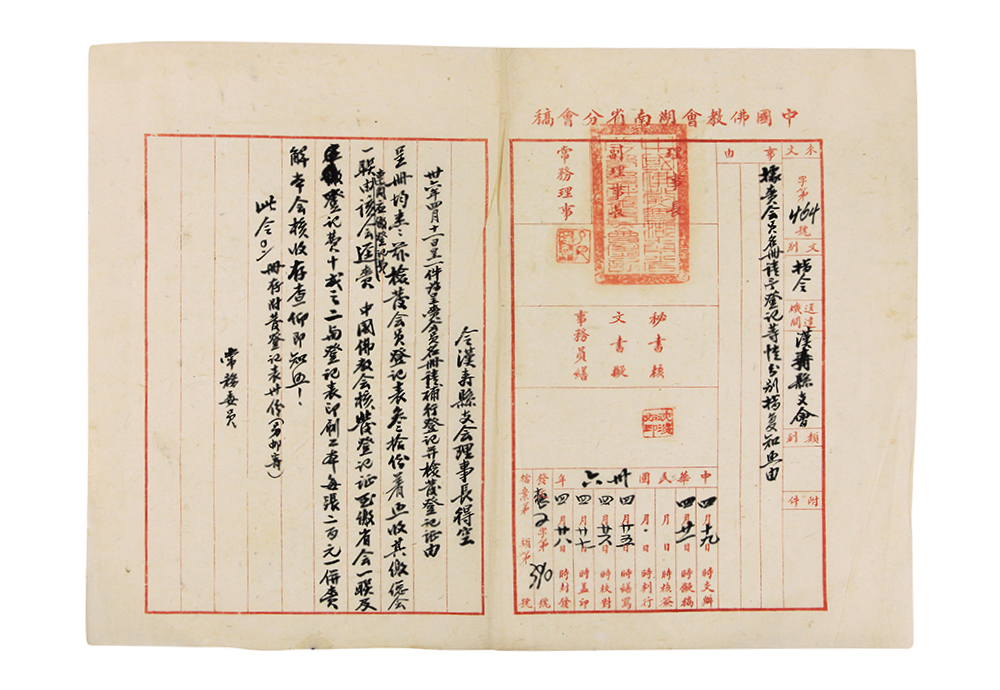 中國佛教會湖南省分會稿
來文 字第464號
文別 指令
送達機關 漢壽縣支會
類別
附件
事由
據賫会員名冊請予登記等情分別指复知照由
理事長
副理事長
常務理事
秘書核
文書擬
事務員繕
中華民國卅六年
四月十九日 時交辦
四月廿二日 時擬稿
月 日 時核簽
月 日 時判行
四月廿五日 時繕寫
四月廿六日 時校對
四月廿七日 時蓋印
四月廿八日 時封發
發文 字第390號
檔案第 類第 號
令漢壽縣支会理事長得空
卅六年四月十一日呈一件為呈賫会員名冊請補行登記并核發登記证由
呈冊均悉茲檢發会員登記表叁拾份着照收其繳總会
一联由該会逕賫中國佛教会核發登記证至缴省会一联及
登記费十成之二與登記表印刷工本每張二百元一併賫
解本会核收存查仰即知照！
此令 冊存附發登記表卅份（另邮寄）
常務委員